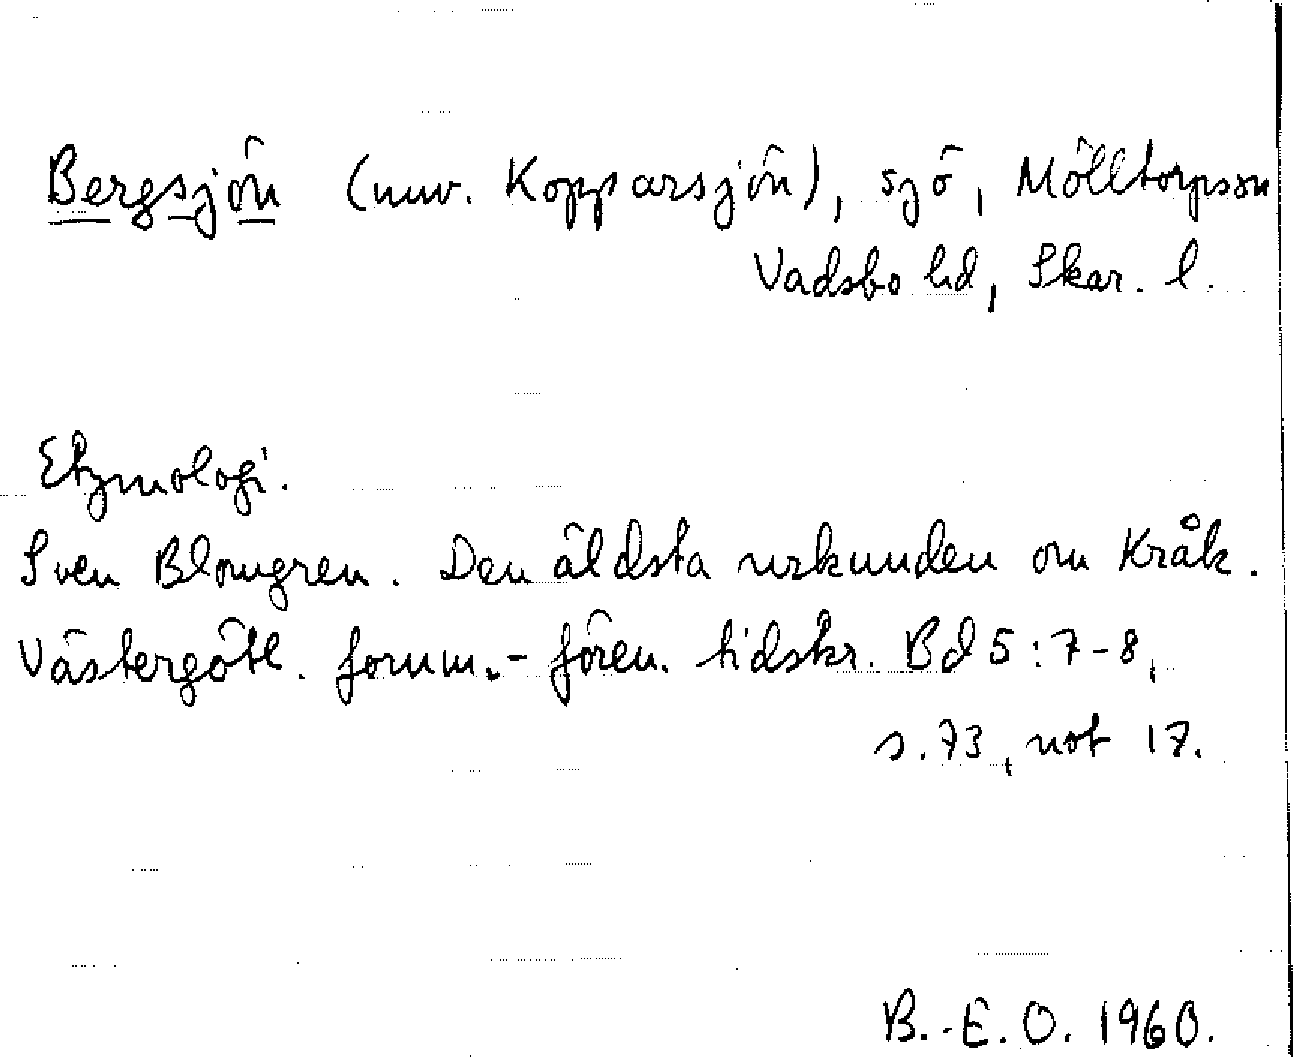 Bergsjön (nuv. Kopparsjön), sjö, Mölltorpssn
Vadsbo hd, Skar. l.
Etymologi.
Sven Blomgren. Den äldsta urkunden om Kråk.
Västergötl. fornm.-fören. tidskr. Bd 5:7-8,
s. 73, not 17.
B.-E. O. 1960.